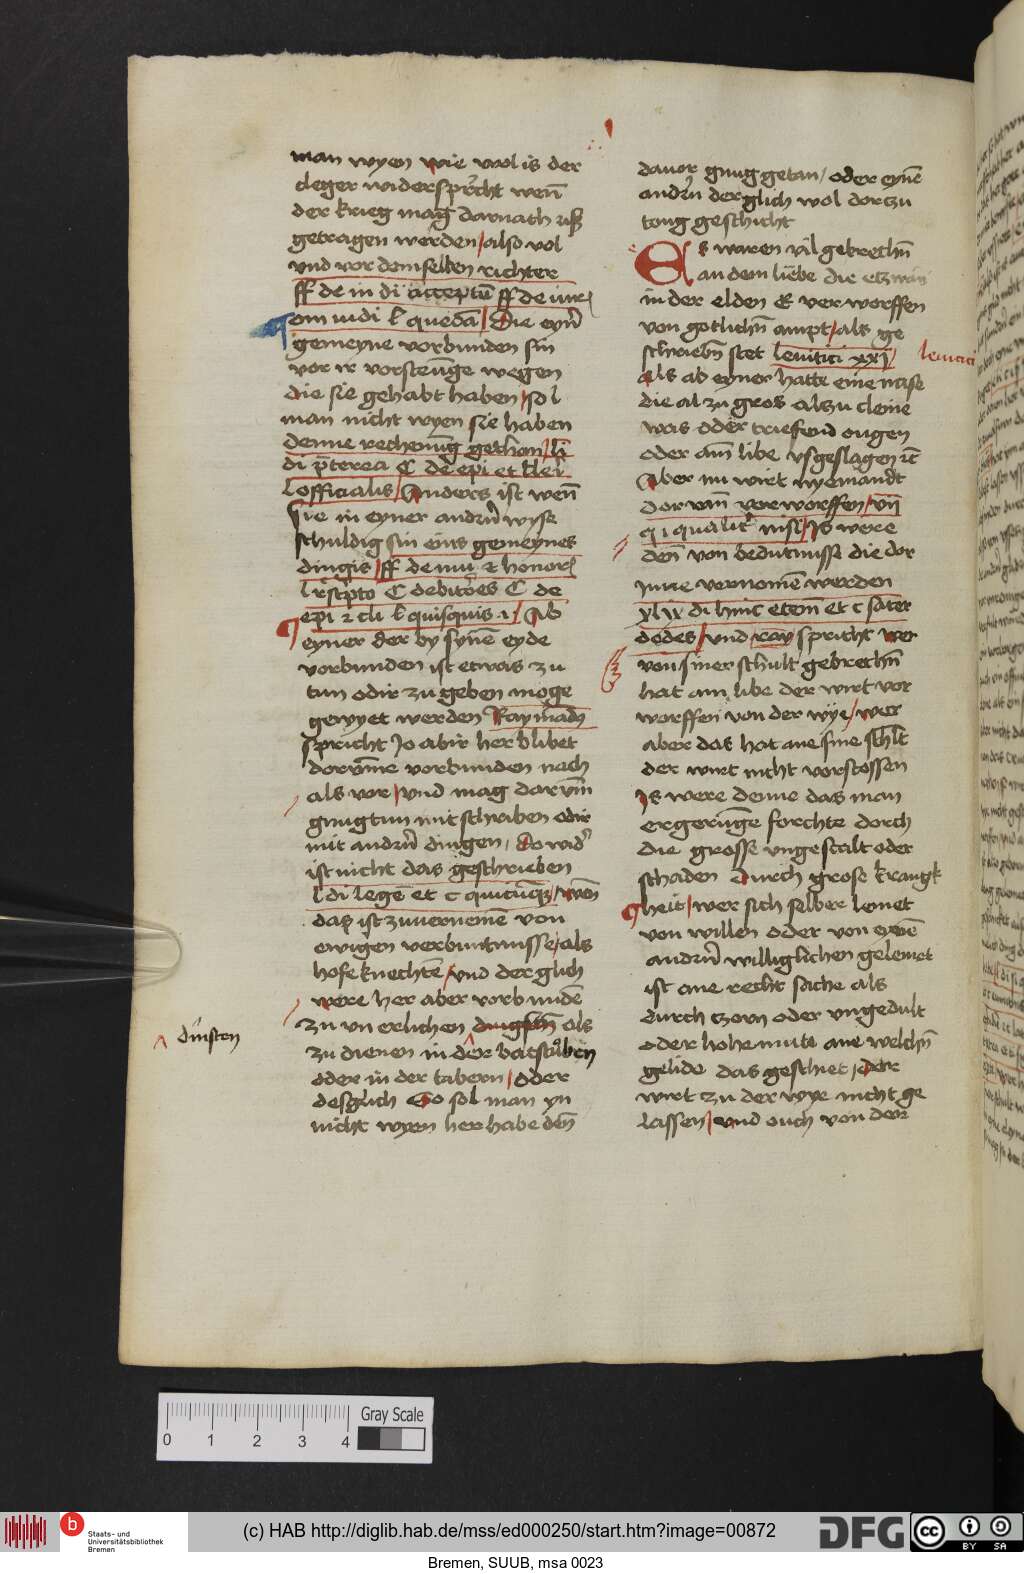 man wyen wie wol is der
cleger widerspricht wen̄
der krieg mag darnach us
getragen werden / also vol
vnd vor demselben richter
ff de in di acceptū ff de iur
om iudi l quedā / Die eyn̄
gemeyne vorbunden sin
vor ir vorsten̄ge wegen
die sie gehabt haben / sol
man nicht wyen sie haben
denne rechenūg gethon / li
di p̄terea C de epi et cler
l officialis / Anders ist wen̄
sie in eyner andrn̄ wyse
schuldig sin eins gemeynes
dingis / ff de mu et honor
l rescripto C debitores C de
epi et cli l quisquis 1 / Ab
eyner der by synē eyde
vorbunden ist etwas zu
tun odir zu geben moge
gewyet werden Raymūdꝯ
spricht Jo abir her blibet
dorvme vorbunden nach
als vor / vnd mag darvm̄
gnugtun mit schriben odir
mit andrn̄ dingen / do wid
ist nicht das geschrieben
l di legē et c quicūqꝫ / wen̄
das ist zuuernemē von
ewigen verbuntnisse / als
hofeknechtē / vnd der glich
were her aber vorbundē
zu vn erlichen dingstn̄ als
dinsten
zu dienen in der batstubin
oder in der tabern / oder
desglich So sol man yn
nicht wyen her habe den̄
davor gnug getan / oder eynē
andrn̄ derglich wol dorzu
toug geschicht
Es waren vil gebrechn̄
an dem liebe die etzwan
in der elden E ver worffen
von gotlichn̄ ampt / als ge
schriebn̄ stet leuitici xxj /
leuitici
als ab eyner hatte eine nase
die al zu gros alzu cleine
was oder triefend ougen
oder am̄ libe vsgeslagen etc
Aber nu wirt nyemandt
dor vm̄ vorworffen / vn̄
q i qualit̄ nisi / Is were
den̄ von bedutnisse die dor
Inne vernomē werden
xlix di hinc etem̄ et c sater
dodes / vnd ray spricht wer
von siner schult gebrechn̄
hat am libe der wirt vor
worffen von der wye / wer
aber das hat ane sine schlt
der wirt nicht vorstossen
Is were denne das man
ergerūge forchte dorch
die grosse vngestalt oder
schaden durch grose krangk
heit / wer sich selber lemet
von willen oder von eynē
andrn̄ willuglichen gelemet
ist ane recht sache als
durch czorn oder vngedult
oder hohemute ane welchn̄
gelide das geschiet / der
wirt czu der wye nicht ge
lassen / vnd ouch von der
0 1 2 3 4
Gray Scale
b
Staats- und
Universitätsbibliothek
Bremen
(c) HAB http://diglib.hab.de/mss/ed000250/start.htm?image=00872
DFG
cc BY SA
Bremen, SUUB, msa 0023